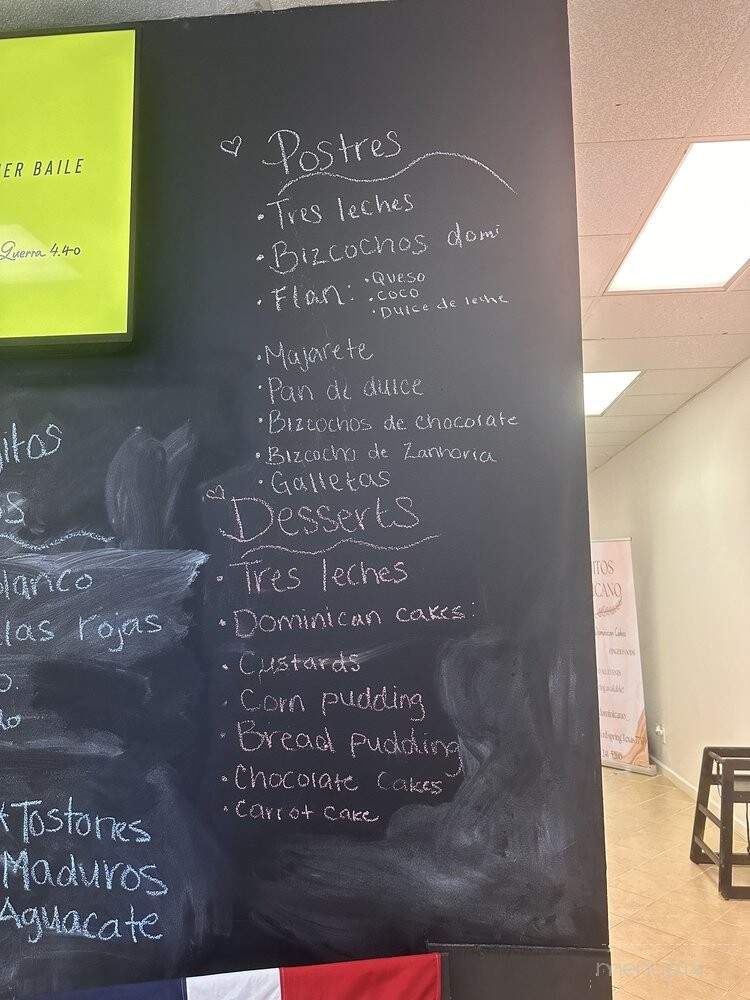 ER BAILE
Guerra 4.40
Postres
• Tres leches
• Bizcochos domi
• Flan: • Queso
• coco
• Dulce de leche
• Majarete
• Pan de dulce
• Bizcochos de chocolate
• Bizcocho de Zanhoria
• Galletas
Desserts
• Tres leches
• Dominican cakes:
• Custards
• Corn pudding
• Bread pudding
• Chocolate Cakes
• Carrot cake
itos
lanco
las rojas
Tostones
Maduros
Aguacate
ITOS
CANO